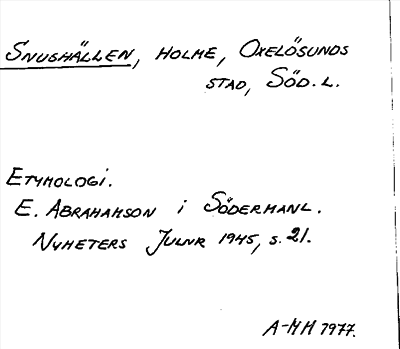 SNUSHÄLLEN, HOLME, OXELÖSUNDS
STAD, SÖD. L.
ETYMOLOGI.
E. ABRAHAMSON i SÖDERMANL.
NYHETERS JULNR 1945, s. 21.
A-MM 1977.